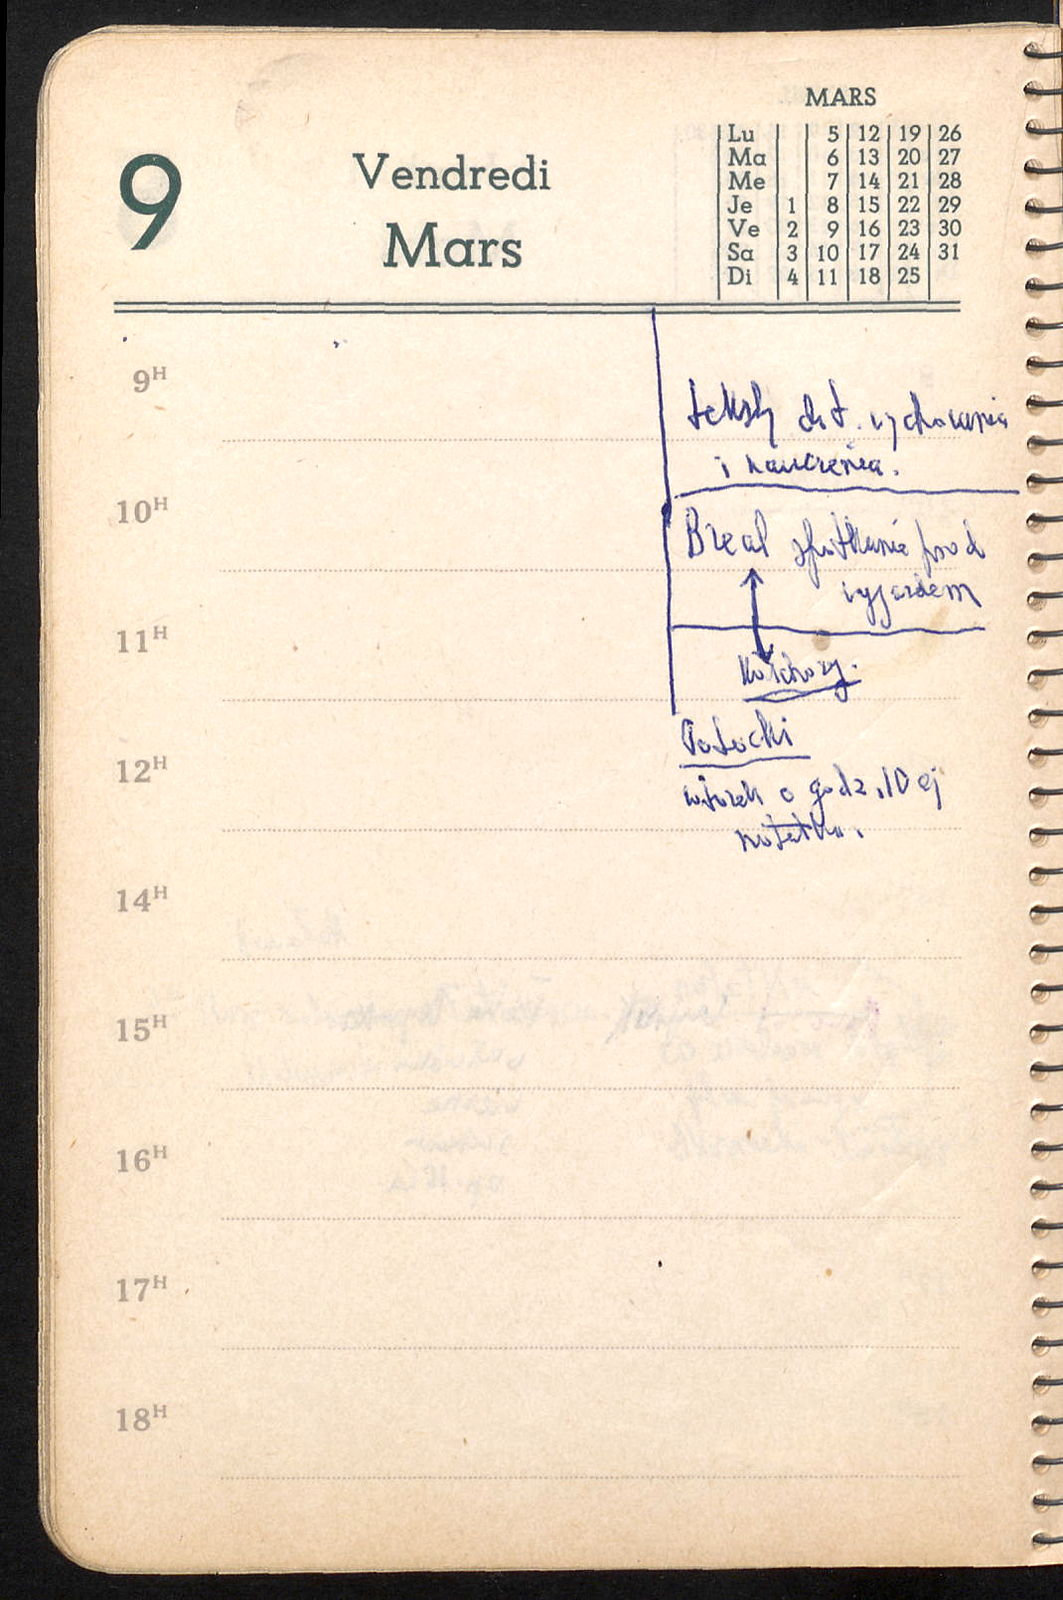 MARS
Lu 5 12 19 26
Ma 6 13 20 27
Me 7 14 21 28
Je 1 8 15 22 29
Ve 2 9 16 23 30
Sa 3 10 17 24 31
Di 4 11 18 25
9
Vendredi
Mars
9H
teksty dot. wychowania
i nauczania.
10H
Breal spotkanie przed
wyjazdem
11H
Potocki
12H
wtorek o godz. 10 ej
notatka.
14H
15H
16H
17H
18H